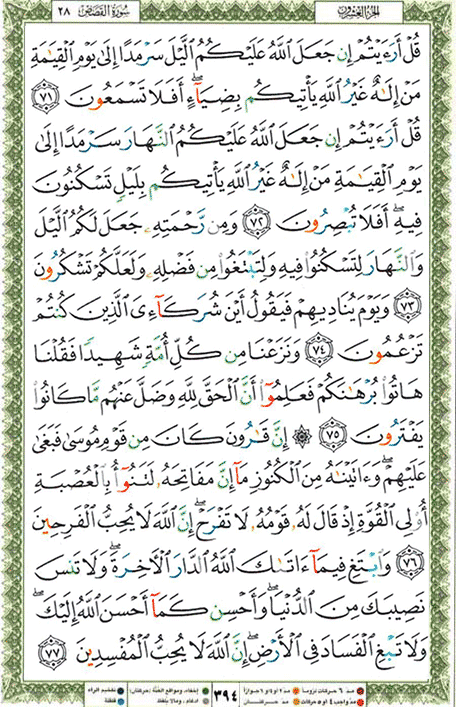 الجزء العشرون
سورة القصص ٢٨
قُلْ أَرَءَيْتُمْ إِن جَعَلَ ٱللَّهُ عَلَيْكُمُ ٱلَّيْلَ سَرْمَدًا إِلَىٰ يَوْمِ ٱلْقِيَٰمَةِ
مَنْ إِلَٰهٌ غَيْرُ ٱللَّهِ يَأْتِيكُم بِضِيَآءٍ ۖ أَفَلَا تَسْمَعُونَ ٧١
قُلْ أَرَءَيْتُمْ إِن جَعَلَ ٱللَّهُ عَلَيْكُمُ ٱلنَّهَارَ سَرْمَدًا إِلَىٰ
يَوْمِ ٱلْقِيَٰمَةِ مَنْ إِلَٰهٌ غَيْرُ ٱللَّهِ يَأْتِيكُم بِلَيْلٍ تَسْكُنُونَ
فِيهِ ۖ أَفَلَا تُبْصِرُونَ ٧٢ وَمِن رَّحْمَتِهِۦ جَعَلَ لَكُمُ ٱلَّيْلَ
وَٱلنَّهَارَ لِتَسْكُنُوا۟ فِيهِ وَلِتَبْتَغُوا۟ مِن فَضْلِهِۦ وَلَعَلَّكُمْ تَشْكُرُونَ
٧٣ وَيَوْمَ يُنَادِيهِمْ فَيَقُولُ أَيْنَ شُرَكَآءِىَ ٱلَّذِينَ كُنتُمْ
تَزْعُمُونَ ٧٤ وَنَزَعْنَا مِن كُلِّ أُمَّةٍ شَهِيدًا فَقُلْنَا
هَاتُوا۟ بُرْهَٰنَكُمْ فَعَلِمُوٓا۟ أَنَّ ٱلْحَقَّ لِلَّهِ وَضَلَّ عَنْهُم مَّا كَانُوا۟
يَفْتَرُونَ ٧٥ ۞ إِنَّ قَٰرُونَ كَانَ مِن قَوْمِ مُوسَىٰ فَبَغَىٰ
عَلَيْهِمْ ۖ وَءَاتَيْنَٰهُ مِنَ ٱلْكُنُوزِ مَآ إِنَّ مَفَاتِحَهُۥ لَتَنُوٓأُ بِٱلْعُصْبَةِ
أُو۟لِى ٱلْقُوَّةِ إِذْ قَالَ لَهُۥ قَوْمُهُۥ لَا تَفْرَحْ ۖ إِنَّ ٱللَّهَ لَا يُحِبُّ ٱلْفَرِحِينَ
٧٦ وَٱبْتَغِ فِيمَآ ءَاتَىٰكَ ٱللَّهُ ٱلدَّارَ ٱلْءَاخِرَةَ ۖ وَلَا تَنسَ
نَصِيبَكَ مِنَ ٱلدُّنْيَا ۖ وَأَحْسِن كَمَآ أَحْسَنَ ٱللَّهُ إِلَيْكَ ۖ
وَلَا تَبْغِ ٱلْفَسَادَ فِى ٱلْأَرْضِ ۖ إِنَّ ٱللَّهَ لَا يُحِبُّ ٱلْمُفْسِدِينَ ٧٧
مد ٦ حركات لزوماً مد ٢ او ٤ او ٦ جوازاً ٣٩٤ إخفاء، ومواقع الغنة (حركتان) تفخيم الراء
مد واجب ٤ او ٥ حركات مد حركتان إدغام، وما لا يلفظ قلقلة